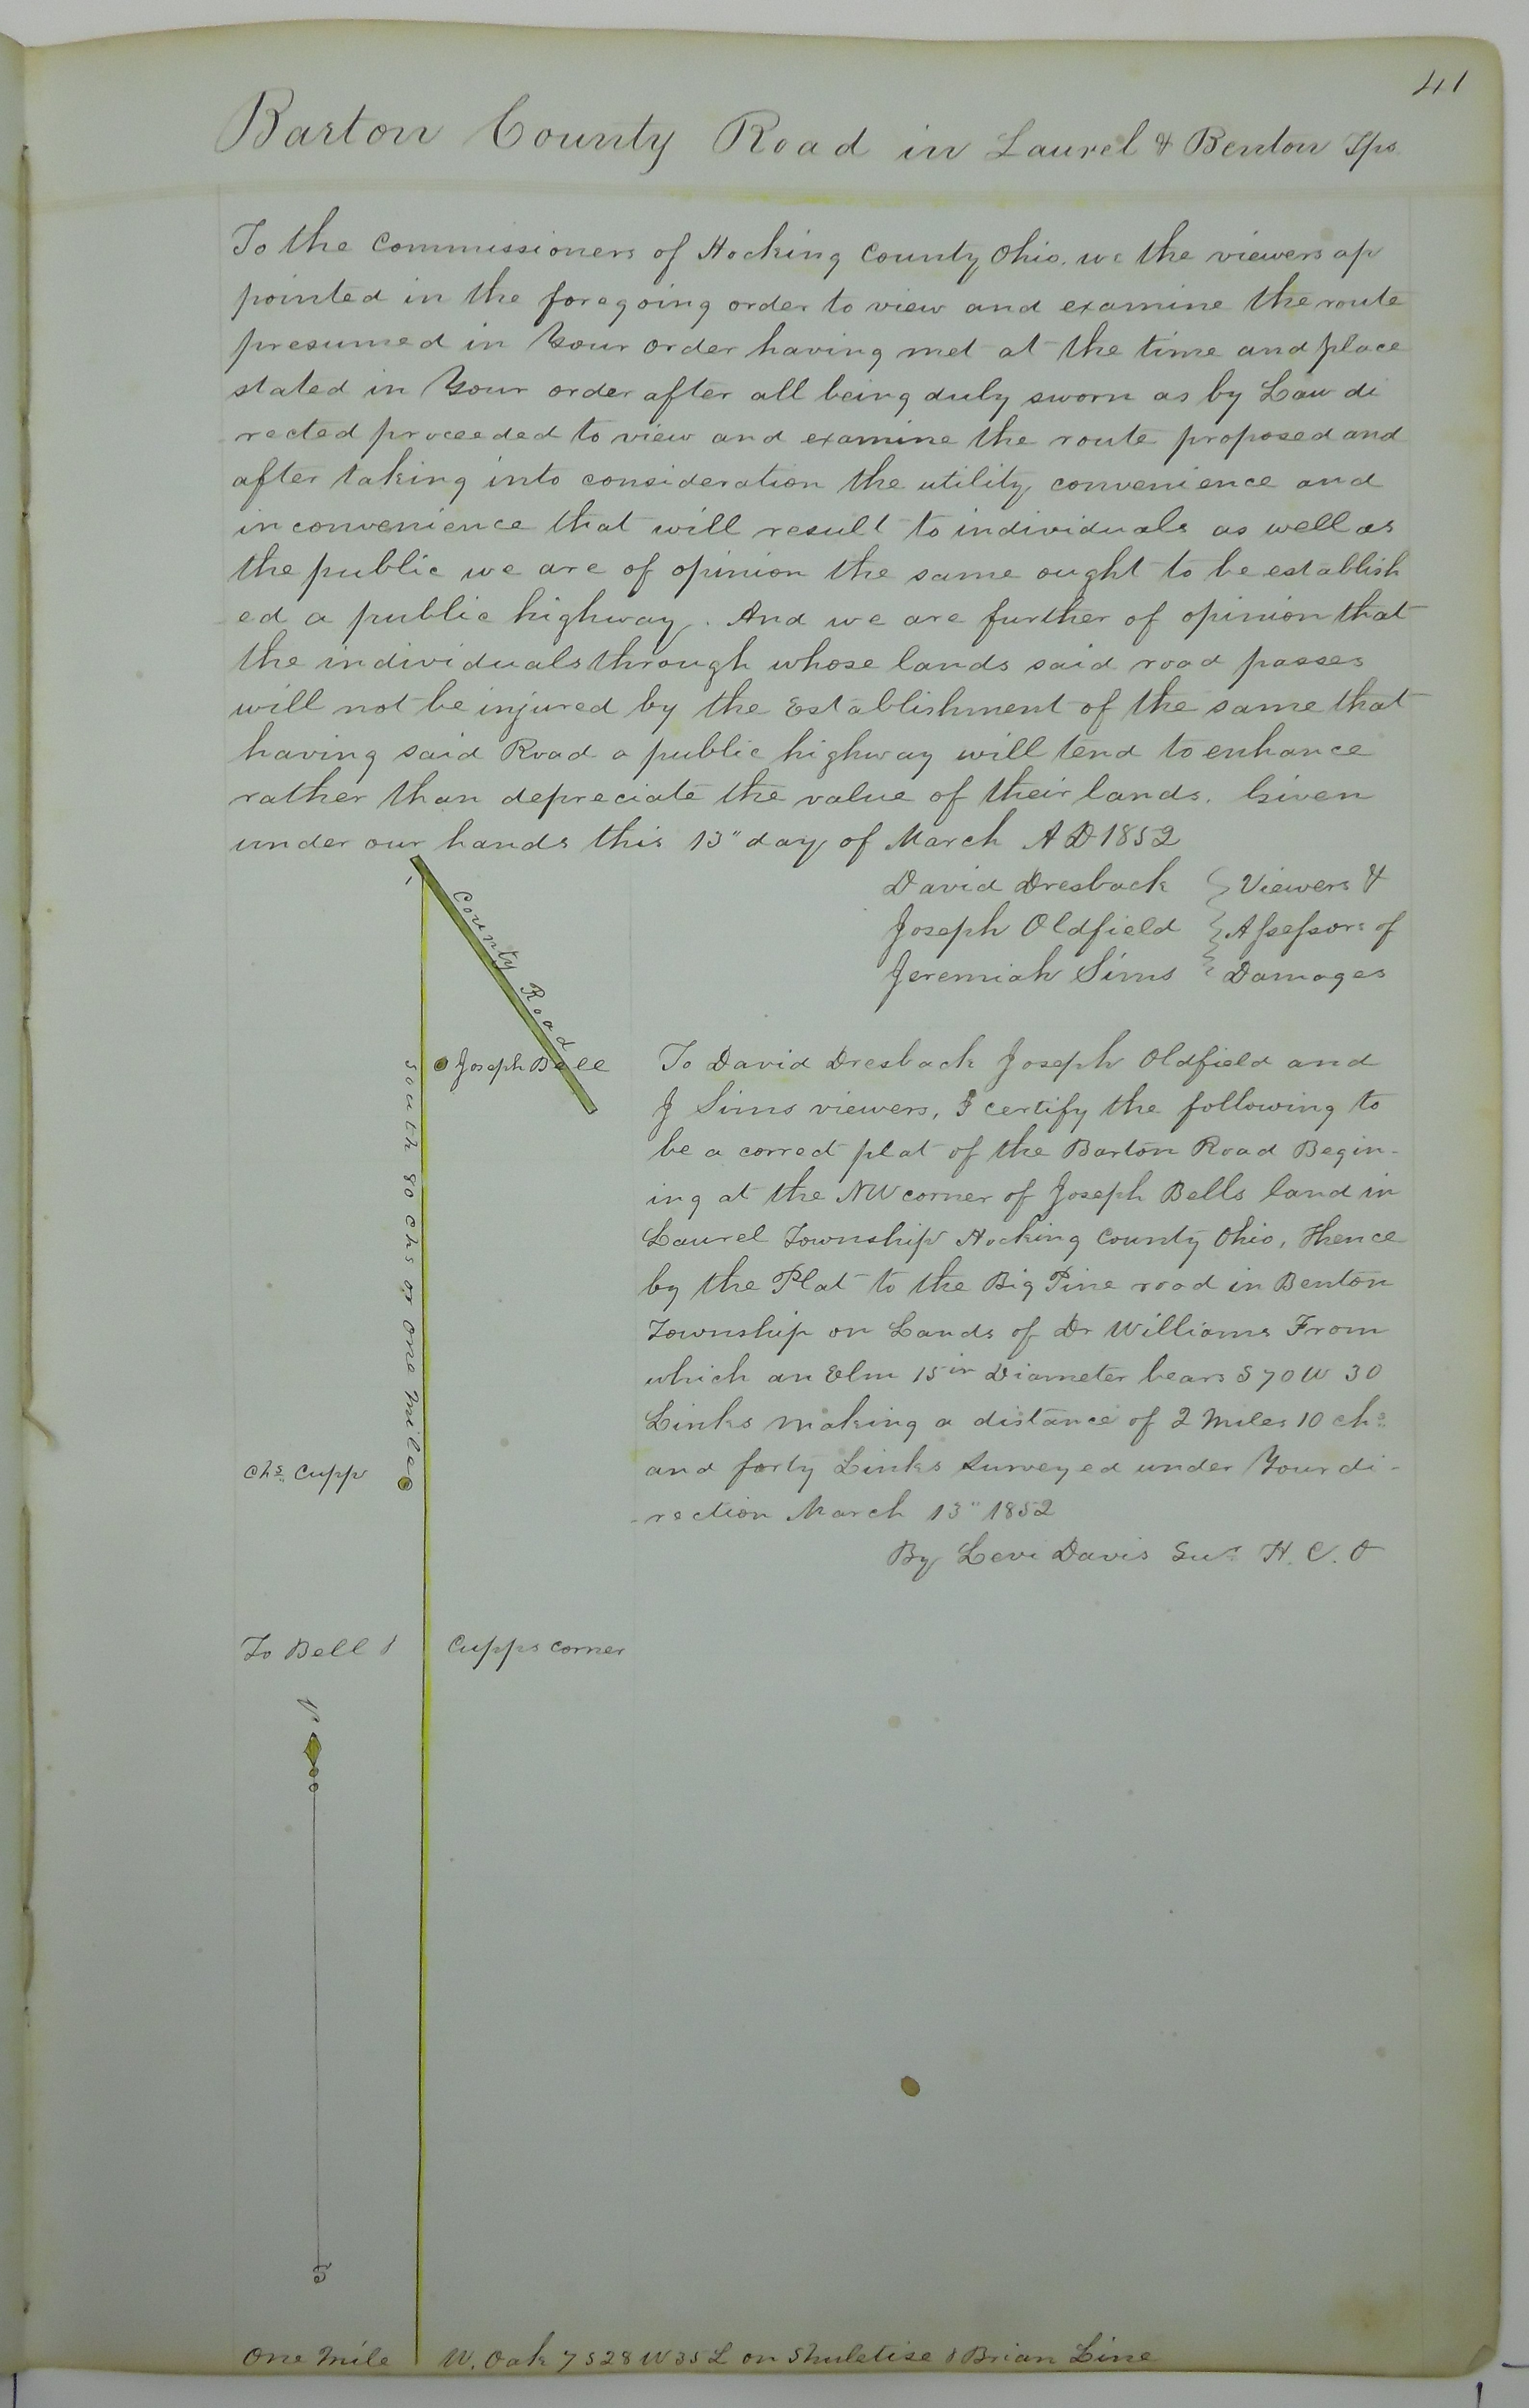 41
Barton County Road in Laurel & Benton Tps.
To the Commissioners of Hocking County Ohio. we the viewers ap
pointed in the foregoing order to view and examine the route
presumed in Your order having met at the time and place
stated in Your order after all being duly sworn as by Law di
rected proceeded to view and examine the route proposed and
after taking into consideration the utility, convenience and
inconvenience that will result to individuals as well as
the public we are of opinion the same ought to be establish
ed a public highway. And we are further of opinion that
the individuals through whose lands said road passes
will not be injured by the Establishment of the same that
having said Road a public highway will tend to enhance
rather than depreciate the value of their lands. Given
under our hands this 13" day of March A D 1852
David Dresback } Viewers &
Joseph Oldfield } Assessors of
Jeremiah Sims } Damages
County Road
Joseph Bell
South 80 chs or one mile
To David Dresback Joseph Oldfield and
J Sims viewers, I certify the following to
be a correct plat of the Barton Road Begin-
ing at the NW corner of Joseph Bells land in
Laurel Township Hocking County Ohio, Thence
by the Plat to the Big Pine road in Benton
Township on Lands of Dr Williams From
which an Elm 15 in Diameter bears S 70 W 30
Links making a distance of 2 Miles 10 chs
and forty Links Surveyed under Your di-
-rection March 13" 1852
By Levi Davis Sur. H. C. O
Chs Cupp
To Bell & Cupps corner
N
S
One Mile W. Oak 7 S 28 W 35 L on & Brian Line